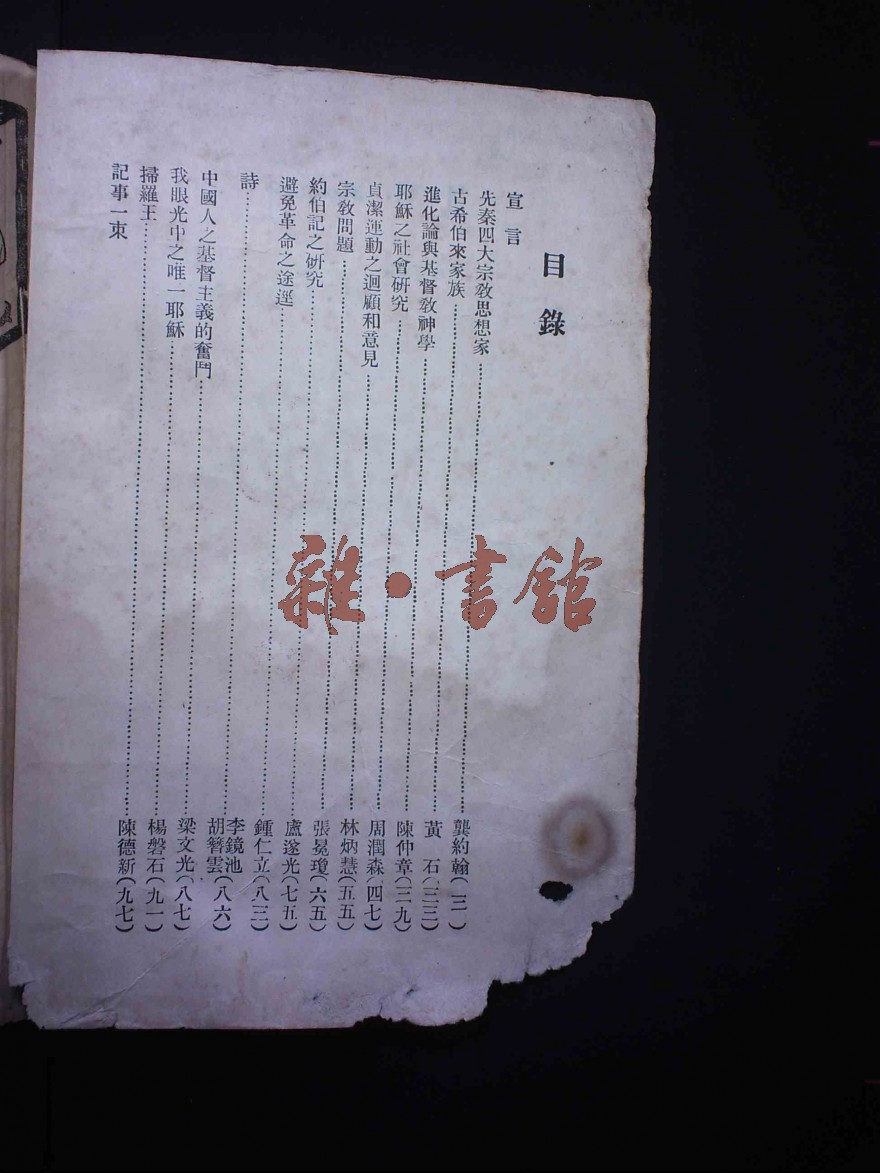 目錄
宣言
先秦四大宗教思想家……龔約翰(三一)
古希伯來家族……黃石(三三)
進化論與基督教神學……陳仲章(三九)
耶穌之社會研究……周潤森(四七)
貞潔運動之迴顧和意見……林炳慧(五五)
宗教問題……張冕瓊(六五)
約伯記之研究……盧遂光(七五)
避免革命之途逕……鍾仁立(八三)
詩……李鏡池
胡簪雲(八六)
中國人之基督主義的奮鬥……梁文光(八七)
我眼光中之唯一耶穌……楊磐石(九一)
掃羅王……陳德新(九七)
記事一束
雜·書館